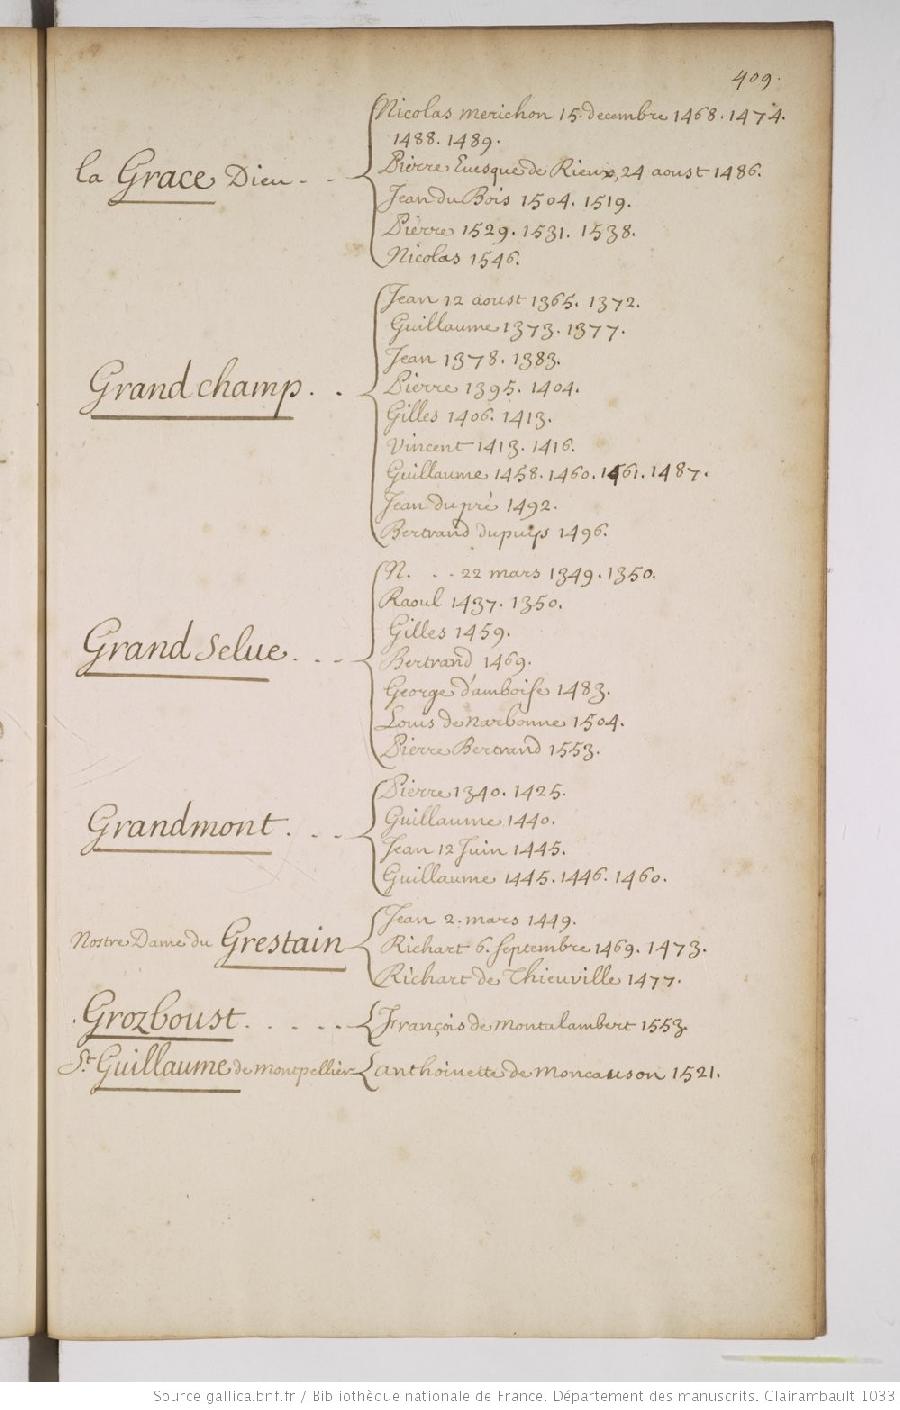 409.
la Grace Dieu - -
Nicolas merichon 15 decembre 1468. 1474.
1488. 1489.
Pierre Euesque de Rieux, 24 aoust 1486.
Jean du Bois 1504. 1519.
Pierre 1529. 1531. 1538.
Nicolas 1546.
Grandchamp . .
Jean 12 aoust 1365. 1372.
Guillaume 1373. 1377.
Jean 1378. 1383.
Pierre 1395. 1404.
Gilles 1406. 1413.
Vincent 1413. 1416.
Guillaume 1458. 1460. 1461. 1487.
Jean dupré 1492.
Bertrand dupuys 1496.
Grand Selue . . -
N. . . 22 mars 1349. 1350.
Raoul 1437. 1350.
Gilles 1459.
Bertrand 1469.
George d'amboise 1483.
Louis de Narbonne 1504.
Pierre Bertrand 1553.
Grandmont . . -
Pierre 1340. 1425.
Guillaume 1440.
Jean 12 Juin 1445.
Guillaume 1445. 1446. 1460.
Nostre Dame du Grestain
Jean 2. mars 1449.
Richart 6. septembre 1469. 1473.
Richart de Thieuville 1477.
Grozboust . . . . . François de montalambert 1553.
St. Guillaume de montpellier anthoinette de moncauson 1521.
Source gallica.bnf.fr / Bibliothèque nationale de France. Département des manuscrits. Clairambault 1033